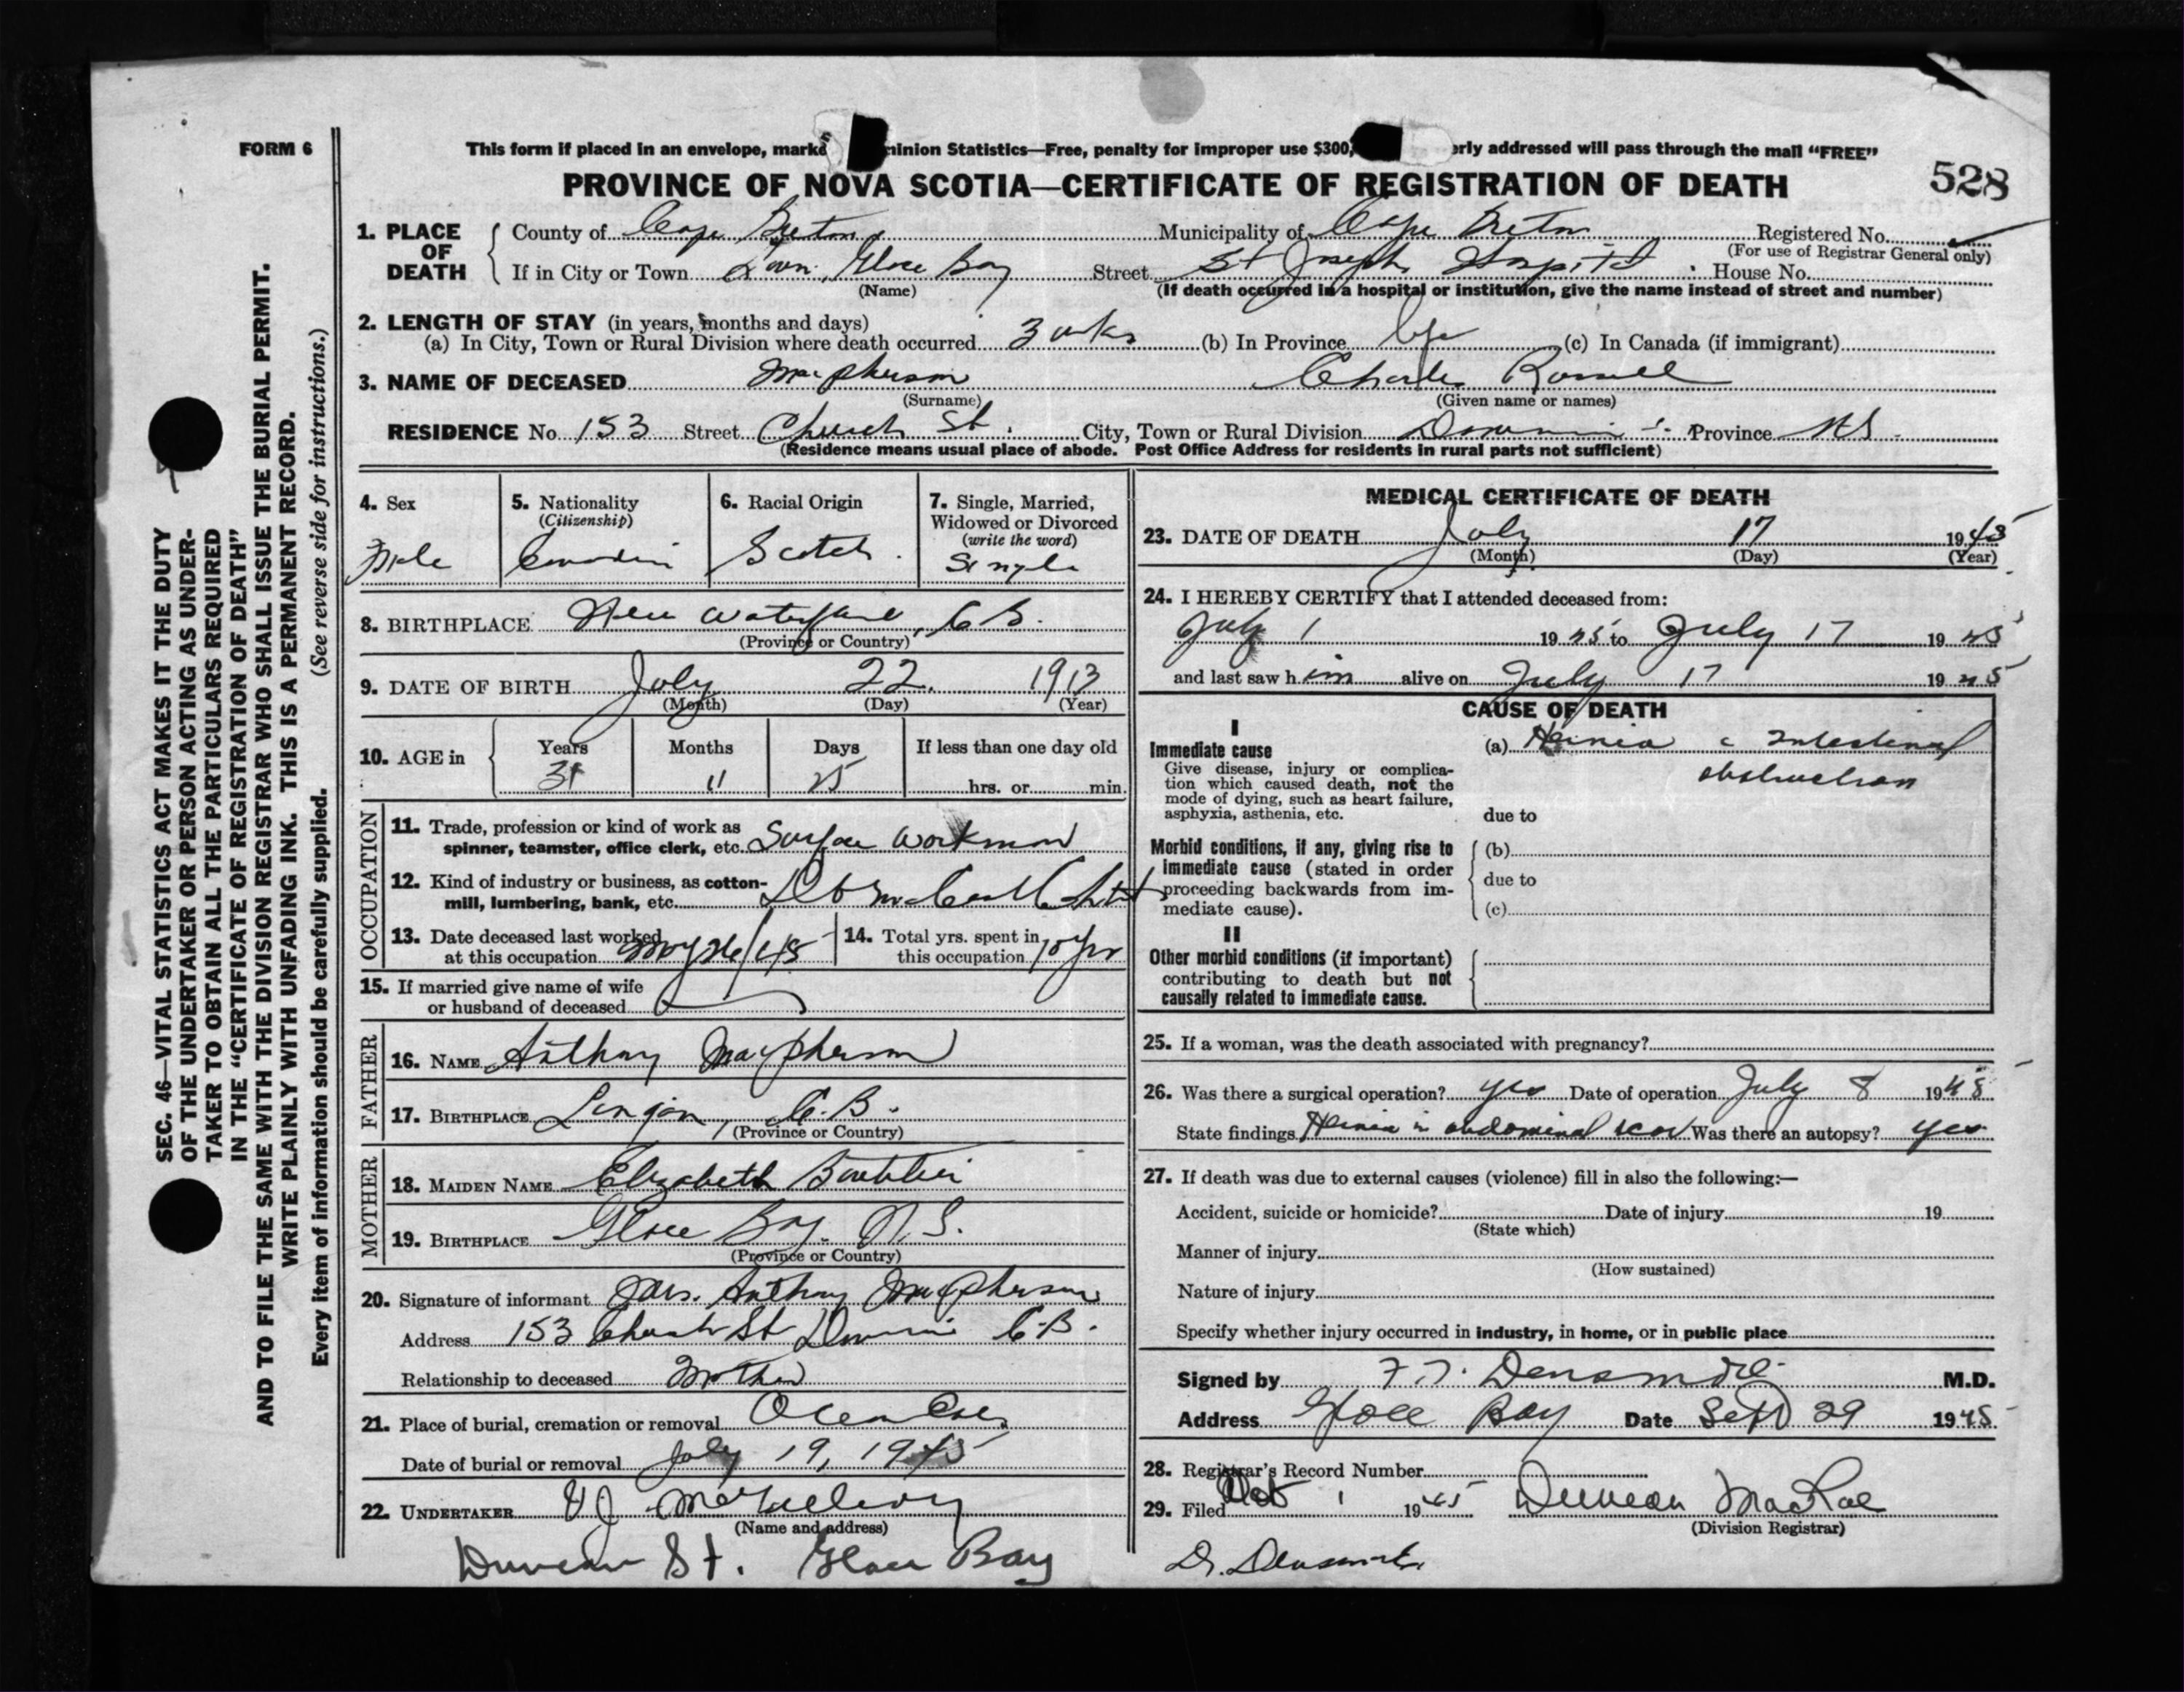 FORM 6
This form if placed in an envelope, marke inion Statistics—Free, penalty for improper use $300, erly addressed will pass through the mail "FREE"
PROVINCE OF NOVA SCOTIA—CERTIFICATE OF REGISTRATION OF DEATH
528
1. PLACE OF DEATH
County of Cape Breton Municipality of Cape Breton Registered No.
(For use of Registrar General only)
If in City or Town Town, Glace Bay Street St Joseph Hospital House No.
(Name) (If death occurred in a hospital or institution, give the name instead of street and number)
2. LENGTH OF STAY (in years, months and days)
(a) In City, Town or Rural Division where death occurred 3 wks (b) In Province life (c) In Canada (if immigrant)
3. NAME OF DECEASED Macpherson Charles Russell
(Surname) (Given name or names)
RESIDENCE No. 153 Street Church St. City, Town or Rural Division Dominion Province N.S.
(Residence means usual place of abode. Post Office Address for residents in rural parts not sufficient)
4. Sex
Male
5. Nationality
(Citizenship)
Canadian
6. Racial Origin
Scotch
7. Single, Married,
Widowed or Divorced
(write the word)
Single
8. BIRTHPLACE New Waterford, C.B.
(Province or Country)
9. DATE OF BIRTH July 22, 1913
(Month) (Day) (Year)
10. AGE in
Years Months Days If less than one day old
31 11 25 hrs. or min.
OCCUPATION
11. Trade, profession or kind of work as
spinner, teamster, office clerk, etc. Surface workman
12. Kind of industry or business, as cotton-
mill, lumbering, bank, etc.
13. Date deceased last worked
at this occupation May 26/45
14. Total yrs. spent in
this occupation 10 yrs
15. If married give name of wife
or husband of deceased
FATHER
16. NAME Anthony Macpherson
17. BIRTHPLACE Lingan, C.B.
(Province or Country)
MOTHER
18. MAIDEN NAME Elizabeth
19. BIRTHPLACE Glace Bay. N.S.
(Province or Country)
20. Signature of informant Mrs. Anthony Macpherson
Address 153 Church St Dominion C.B.
Relationship to deceased Mother
21. Place of burial, cremation or removal
Date of burial or removal July 19, 1945
22. UNDERTAKER V J
(Name and address)
Duncan St. Glace Bay
MEDICAL CERTIFICATE OF DEATH
23. DATE OF DEATH July 17 1945
(Month) (Day) (Year)
24. I HEREBY CERTIFY that I attended deceased from:
July 1 1945 to July 17 1945
and last saw him alive on July 17 1945
CAUSE OF DEATH
I
Immediate cause
Give disease, injury or complica-
tion which caused death, not the
mode of dying, such as heart failure,
asphyxia, asthenia, etc.
(a) Hernia c Intestinal
obstruction
due to
Morbid conditions, if any, giving rise to
immediate cause (stated in order
proceeding backwards from im-
mediate cause).
(b)
due to
(c)
II
Other morbid conditions (if important)
contributing to death but not
causally related to immediate cause.
25. If a woman, was the death associated with pregnancy?
26. Was there a surgical operation? yes Date of operation July 8 1945
State findings Hernia in abdominal scar Was there an autopsy? yes
27. If death was due to external causes (violence) fill in also the following:—
Accident, suicide or homicide? Date of injury 19
(State which)
Manner of injury
(How sustained)
Nature of injury
Specify whether injury occurred in industry, in home, or in public place
Signed by F. T. Densmore M.D.
Address Glace Bay Date Sept 29 1945
28. Registrar's Record Number
29. Filed Oct 1 1945 Duncan MacRae
(Division Registrar)
Dr. Densmore
SEC. 46—VITAL STATISTICS ACT MAKES IT THE DUTY
OF THE UNDERTAKER OR PERSON ACTING AS UNDER-
TAKER TO OBTAIN ALL THE PARTICULARS REQUIRED
IN THE "CERTIFICATE OF REGISTRATION OF DEATH"
AND TO FILE THE SAME WITH THE DIVISION REGISTRAR WHO SHALL ISSUE THE BURIAL PERMIT.
WRITE PLAINLY WITH UNFADING INK. THIS IS A PERMANENT RECORD.
Every item of information should be carefully supplied. (See reverse side for instructions.)